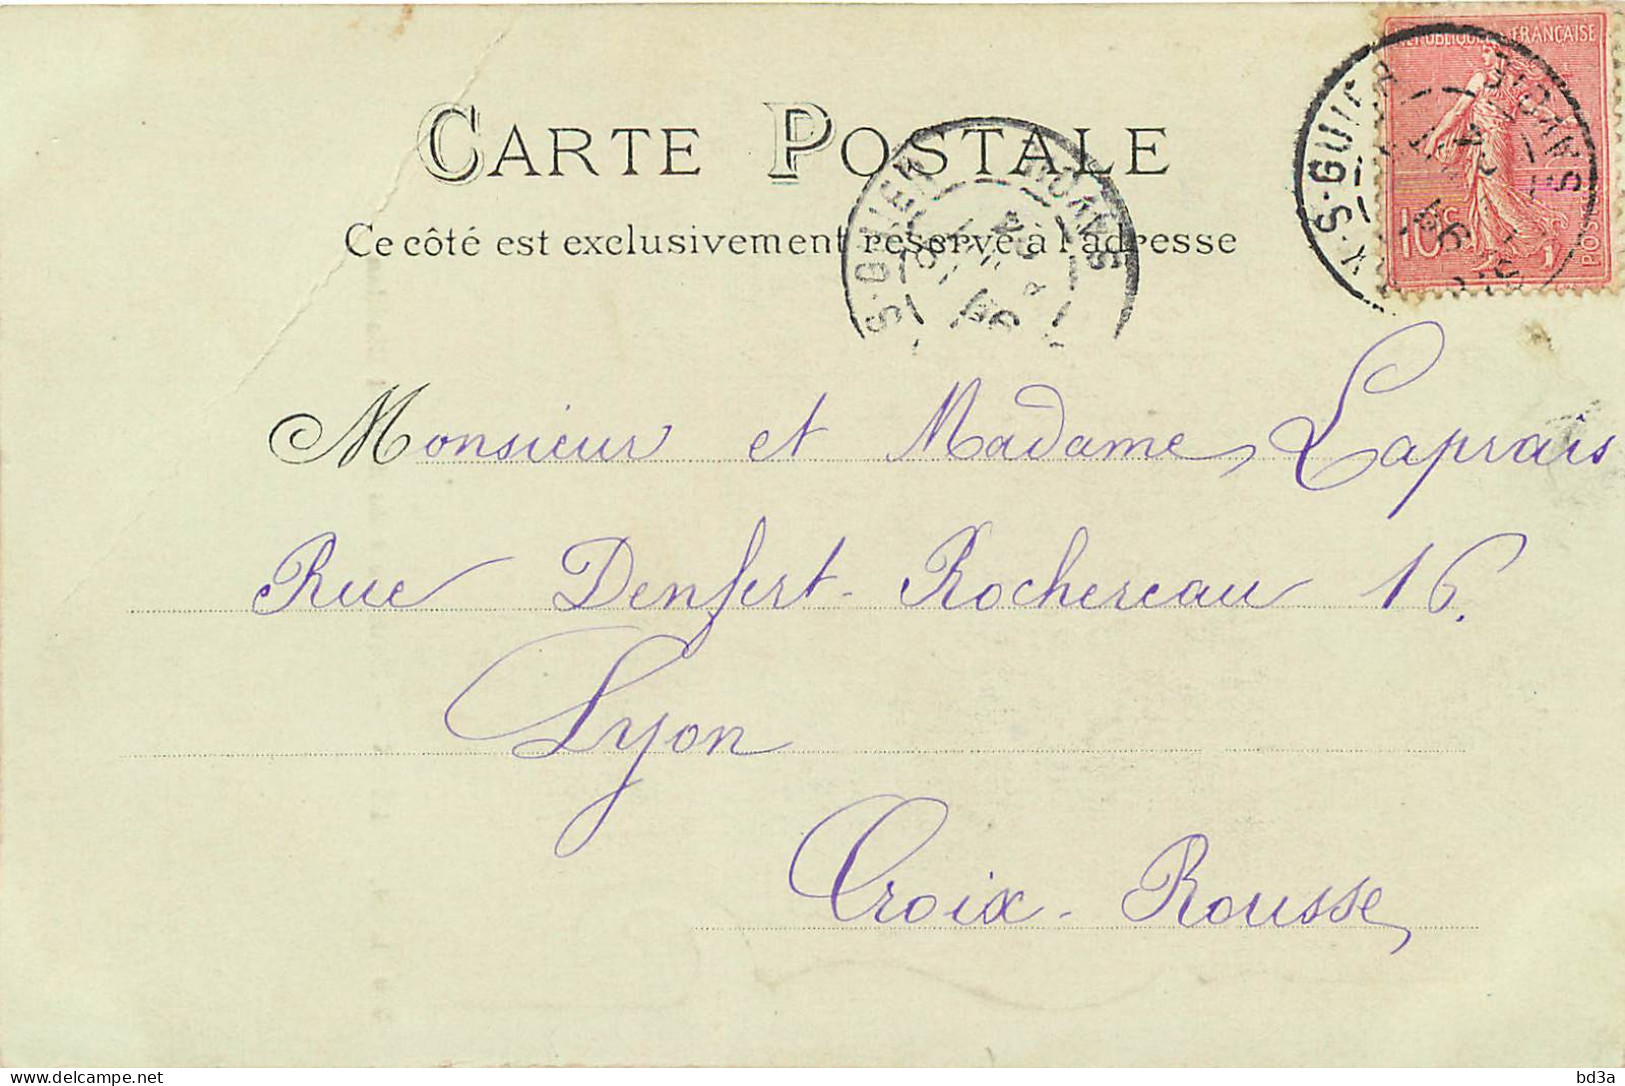 RÉPUBLIQUE FRANÇAISE
10c
POSTES
CARTE POSTALE
Ce côté est exclusivement réservé à l'adresse
Monsieur et Madame Laprais
Rue Denfert-Rochereau 16.
Lyon
Croix-Rousse
www.delcampe.net
bd3a